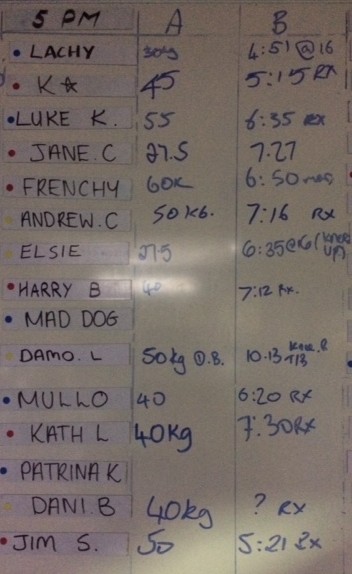 5 PM A B
LACHY 30kg 4:51 @16
K☆ 45 5:15 RX
LUKE K. 55 6:35 RX
JANE.C 27.5 7:27
FRENCHY 60K 6:50
ANDREW.C 50KG. 7:16 RX
ELSIE 27.5 6:35@16 (KNEES UP)
HARRY B 40 7:12 RX.
MAD DOG
DAMO. L 50kg D.B. 10.13
MULLO 40 6:20 RX
KATH L 40kg 7:30RX
PATRINA K
DANI.B 40kg ? RX
JIM S. 50 5:21 RX